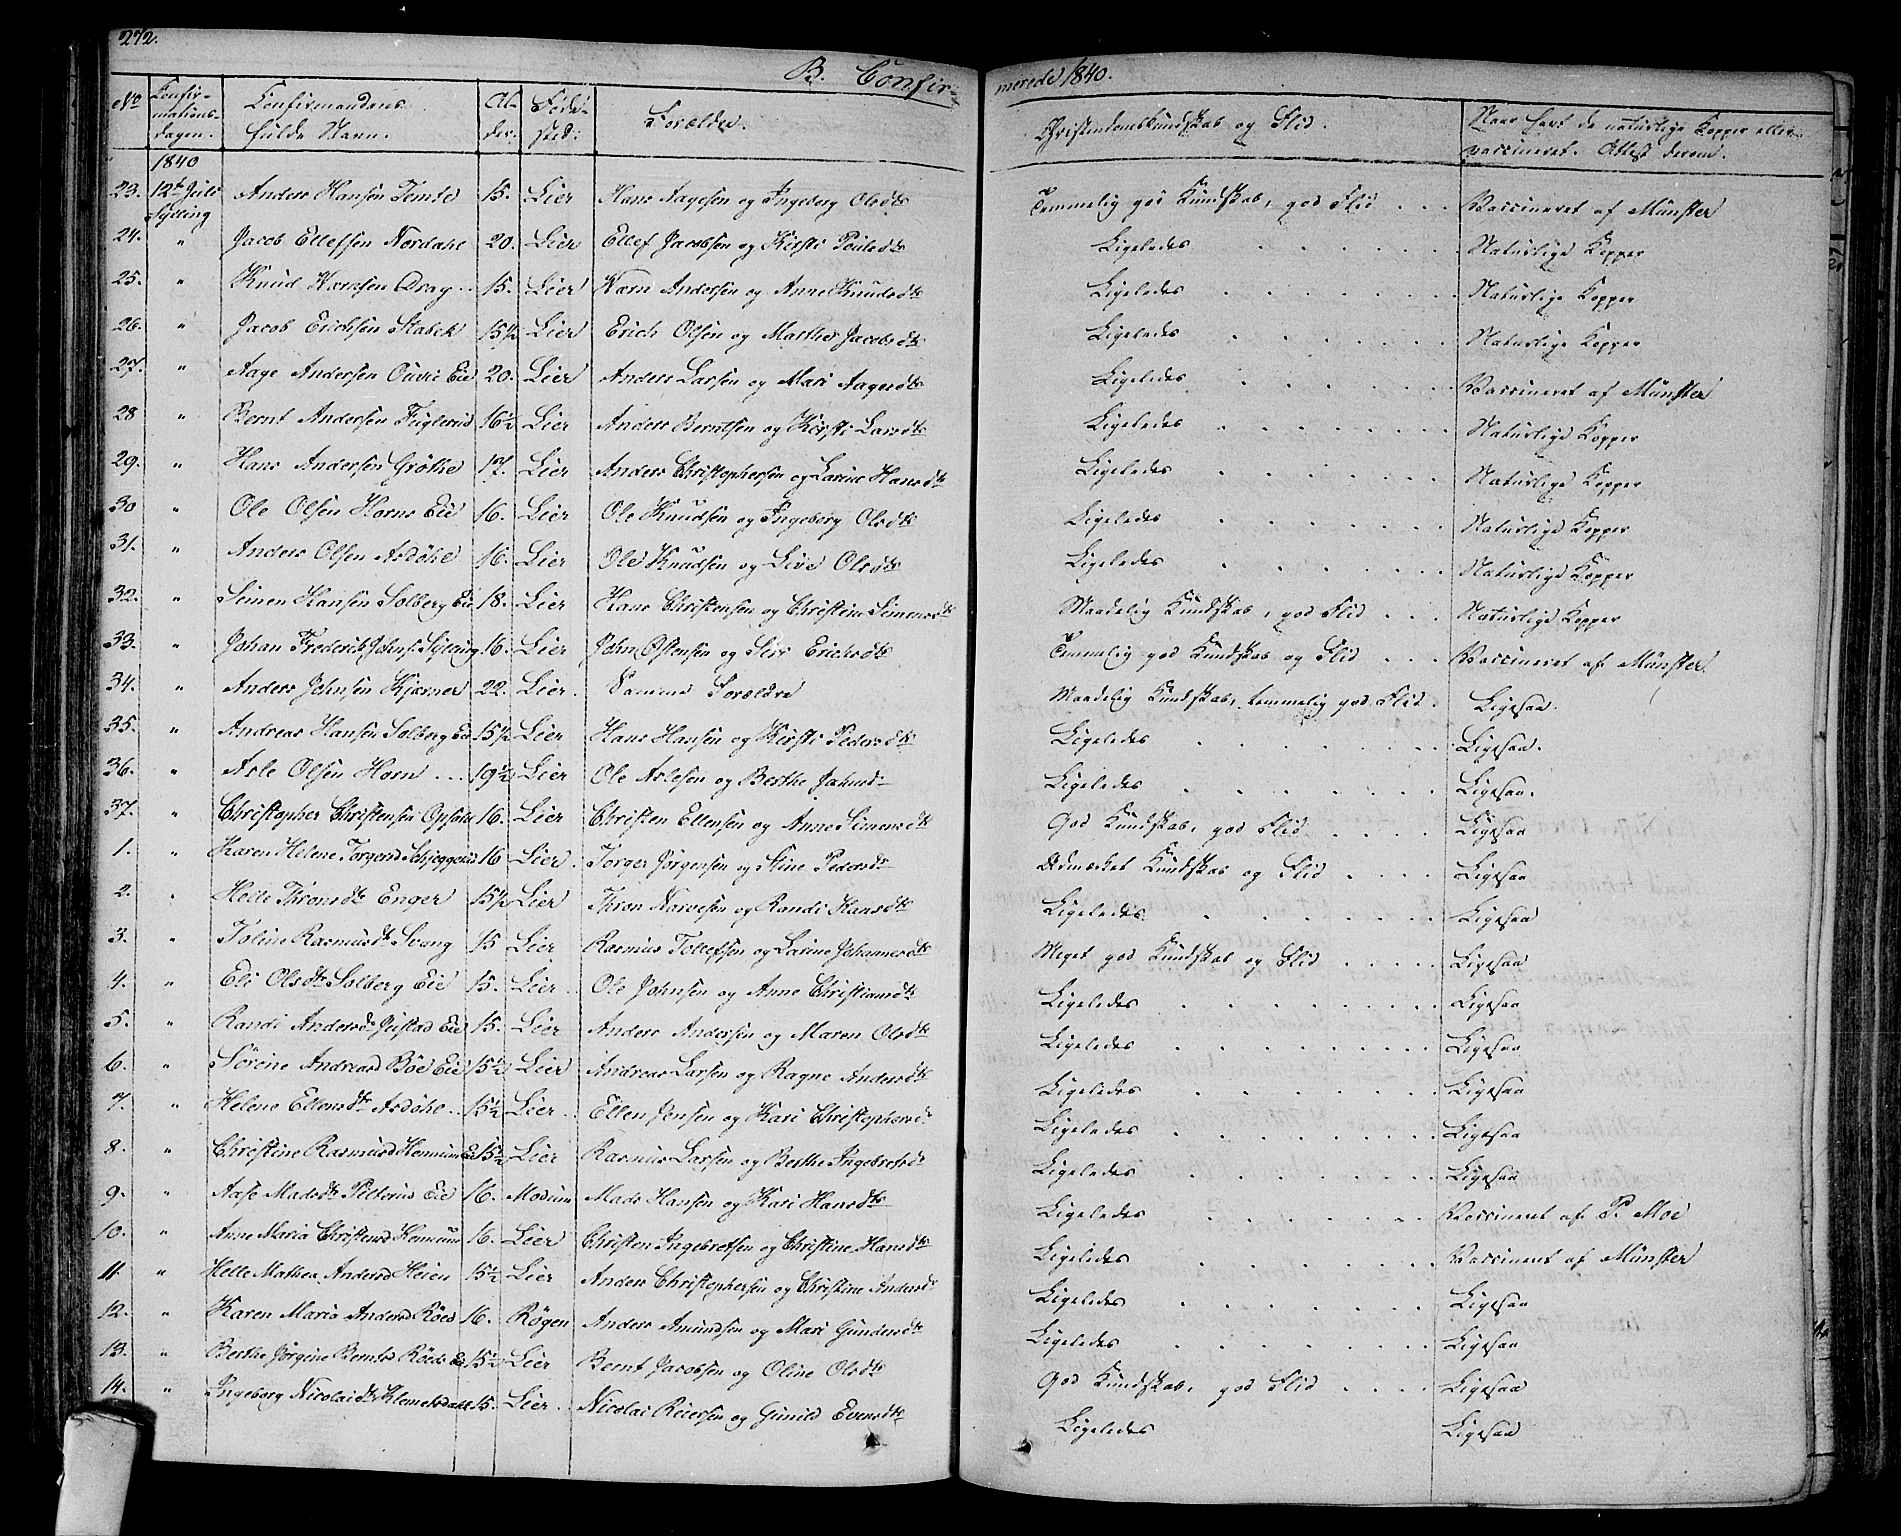 272.
B. Confirmerede 1840.
No Confirmationsdagen. Confirmandens fulde Navn. Alder. Fødested. Forældre. Christendomskundskab og Flid. Naar havt de naturlige Kopper eller vaccineret. Attest derom.
1840
23. 12te Juli Sylling Anders Hansen Temte 15. Lier Hans Aagesen og Ingeborg Olsdtr Temmelig god Kundskab, god Flid Vaccineret af Münster
24. " Jacob Ellefsen Nordahl 20. Lier Ellef Jacobsen og Kirsti Poulsdtr Ligeledes Naturlige Kopper
25. " Knud Narvesen Drag 15. Lier Andersen og Anne Knudsdtr Ligeledes Naturlige Kopper
26. " Jacob Erichsen Stabek 15½ Lier Erich Olsen og Marthe Jacobsdtr Ligeledes Naturlige Kopper
27. " Aage Andersen Eie 20. Lier Anders Larsen og Mari Aagesdtr Ligeledes Vaccineret af Münster
28 " Bernt Andersen Fuglerud 16½ Lier Anders Berntsen og Kirsti Larsdtr Ligeledes Naturlige Kopper
29. " Hans Andersen Grøthe 17. Lier Anders Christophersen og Larine Hansdtr Ligeledes Naturlige Kopper
30 " Ole Olsen Horns Eie 16. Lier Ole Knudsen og Ingeborg Olsdtr Ligeledes Naturlige Kopper
31. " Anders Olsen Asdøhl 16. Lier Ole Knudsen og Live Olsdtr Ligeledes Naturlige Kopper
32. " Simen Hansen Solberg Eie 18. Lier Hans Christensen og Christine Simensdtr Maadelig Kundskab, god Flid Naturlige Kopper
33. " Johan Frederik Johns. Sylling 16. Lier John Ostensen og Siri Erichsdtr Temmelig god Kundskab og Flid Vaccineret af Münster
34. " Anders Johnsen Kjærner 22. Lier. Samme Forældre Maadelig Kundskab, temmelig god Flid. Ligesaa.
35. " Andreas Hansen Solberg Eie 15½ Lier Hans Hansen og Kirsti Pedersdtr Ligeledes Ligesaa.
36. " Asle Olsen Horn 19½ Lier Ole Aslesen og Berthe Johnsd. Ligeledes Ligesaa.
37. " Christopher Christensen Opsahl 16. Lier Christen Ellensen og Anne Simensdtr God Kundskab, god Flid Ligesaa
1. " Karen Helene Torgersd Schjeggerud 16 Lier. Torger Jørgensen og Stine Pedersdtr Udmærket Kundskab og Flid Ligesaa
2. " Helle Thronsdtr Enger 15½ Lier Thron Narvesen og Randi Hansdtr Ligeledes Ligesaa
3. " Toline Rasmusdtr Svang 15 Lier Rasmus Tollefsen og Larine Johannesdtr Meget god Kundskab og Flid Ligesaa
4. " Eli Olsdtr Solberg Eie 15. Lier Ole Johnsen og Anne Christiansdtr Ligeledes Ligesaa
5. " Randi Andersdtr Justad Eie 15. Lier Anders Andersen og Maren Olsdtr Ligeledes Ligesaa
6. " Sørine Andreasd Böe Eie 15½ Lier Andreas Larsen og Ragne Andersdtr Ligeledes Ligesaa
7. " Helene Ellensdtr Asdøhl 15½ Lier Ellen Jensen og Kari Christophersd. Ligeledes Ligesaa
8. " Christine Rasmusd Hennum E 15½ Lier Rasmus Larsen og Berthe Ingebretsd. Ligeledes Ligesaa
9. " Aase Madsdtr Pitterud Eie 16. Modum Mads Hansen og Kari Hansdtr Ligeledes Vaccineret af P. Moe
10. " Anne Maria Christensd Hennum 16. Lier Christen Ingebretsen og Christine Hansdtr Ligeledes Vaccineret af Münster
11. " Helle Mathea Andersd Heien 15½ Lier Anders Christophersen og Christine Andersd. Ligeledes Ligesaa
12. " Karen Maria Andersd Röed 16. Røgen Anders Amundsen og Mari Gundersdtr Ligeledes Ligesaa
13. " Berthe Jørgine Berntsd Röeds Eie 15½ Lier Bernt Jacobsen og Oline Olsdtr God Kundskab, god Flid Ligesaa
14. " Ingeborg Nicolaidtr Klemetsdall 15. Lier. Nicolai Reiersen og Gunild Evensdtr Ligeledes Ligesaa